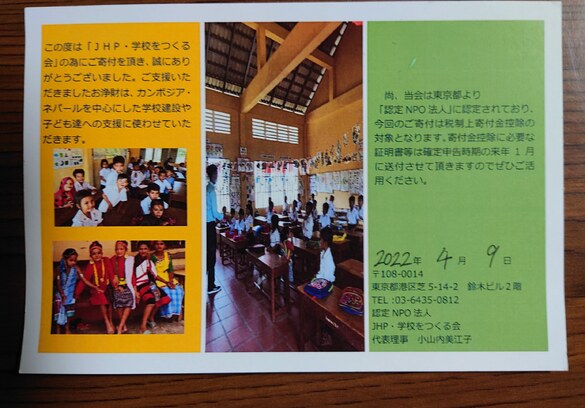 この度は「ＪＨＰ・学校をつくる
会」の為にご寄付を頂き、誠にあり
がとうございました。ご支援いた
だきましたお浄財は、カンボジア・
ネパールを中心にした学校建設や
子ども達への支援に使わせていた
だきます。
尚、当会は東京都より
「認定 NPO 法人」に認定されており、
今回のご寄付は税制上寄付金控除の
対象となります。寄付金控除に必要な
証明書等は確定申告時期の来年 1 月
に送付させて頂きますのでぜひご活
用ください。
2022年 4月 9日
〒108-0014
東京都港区芝 5-14-2 鈴木ビル２階
TEL :03-6435-0812
認定 NPO 法人
JHP・学校をつくる会
代表理事 小山内美江子